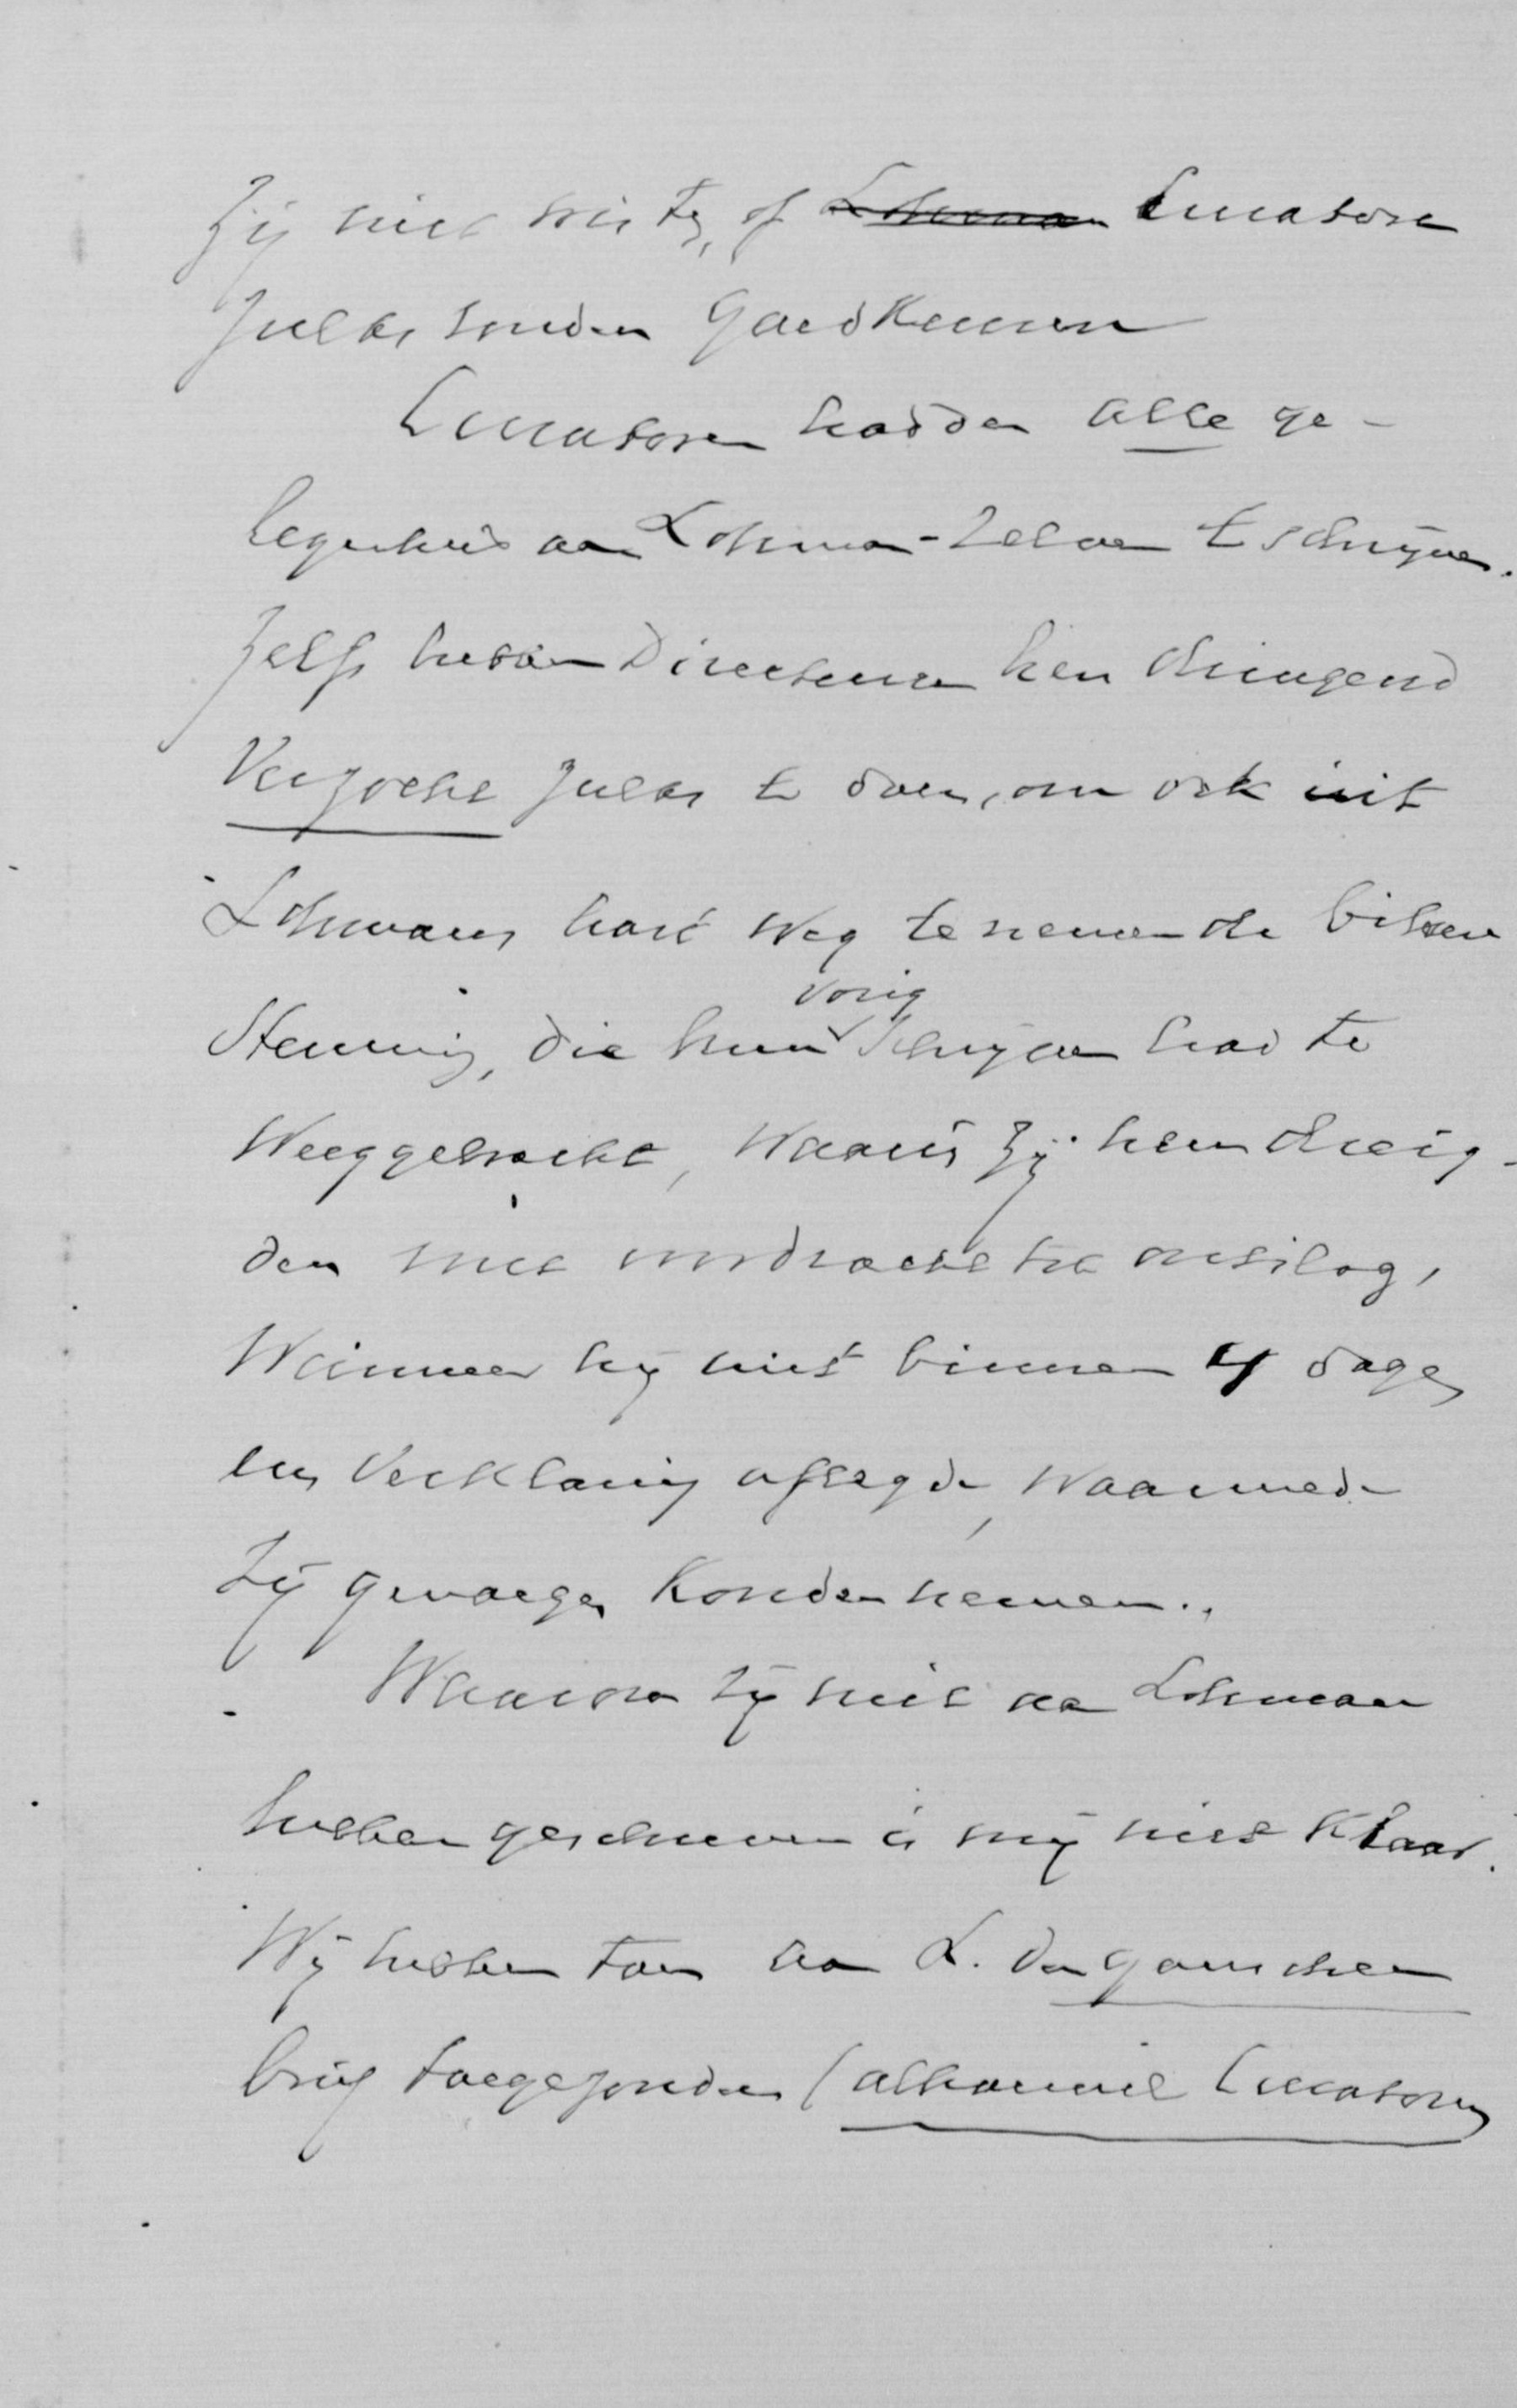 zij niet wisten, of Lohman Curatoren
zulks zouden goedkeuren
Curatoren hadden alle ge-
legenheid aan Lohman-zelven te schrijven.
Zelfs hebben Directeuren hen dringend
verzocht zulks te doen, om ook uit
Lohmans hart weg te nemen de bittere
stemming, die hun vorig schrijven had te
weeggebracht, waarin zij hem dreig-
den met voordracht tot ontslag,
wanneer hij niet binnen 4 dagen
een verklaring aflegde, waarmede
zij genoegen konden nemen.
Waarom zij niet aan Lohman
hebben geschreven is mij niet klaar.
Wij hebben toen aan L. den ganschen
brief toegezonden (althans niet Curatoren